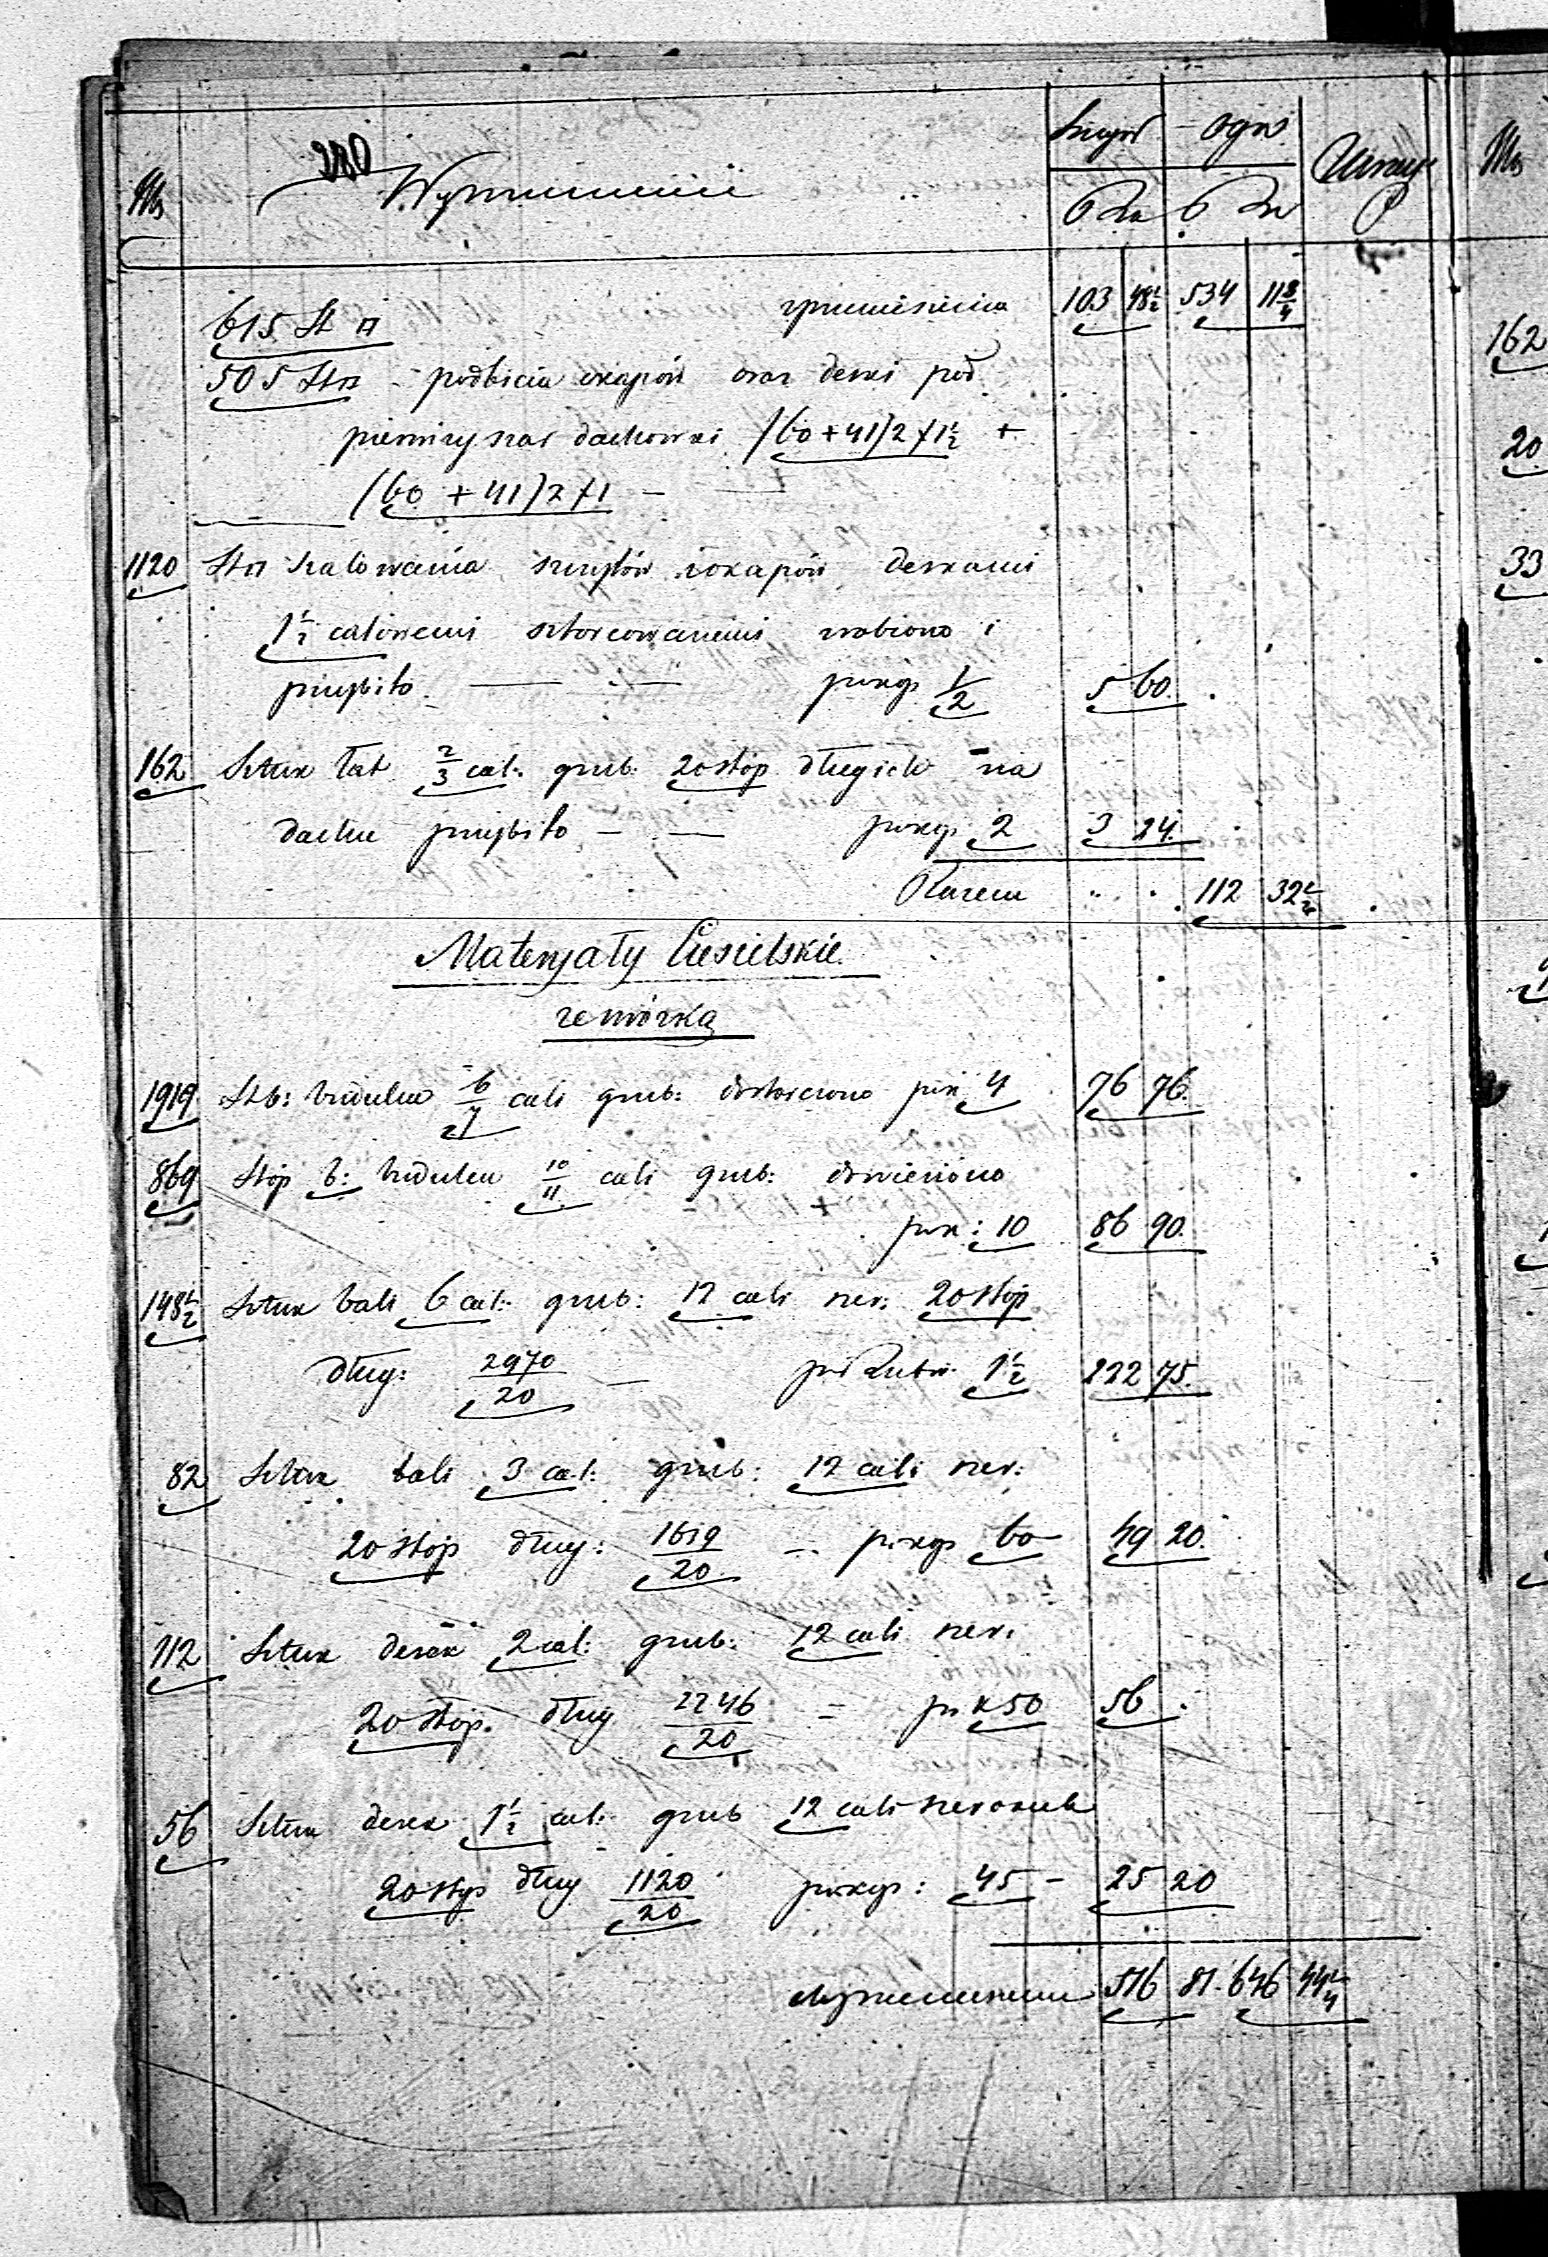 280
Szczegół Ogół
Wyszczególnienie Uwagi
R k R k
615 St □ z przeniesienia 103 48½ 534 11¾
505 St □ podbicia okapów oraz deski pod
pierwszy szar dachówki (60+41)2×1½ +
(60+41)2×1 —
1120 St □ szalowania szczytów i okapów deskami
1½ calowemi sztorcowanemi zrobiono i
przybito — po kop ½ 5 60.
162 Sztuk łat 2/3 cal: grub: 20 stóp długich na
dachu przybito — po kop 2 3 24.
Razem 112 32½
Materjały Ciesielskie
z obróbką
1919 St b: budulcu 6/7 cali grub: dostarczono po k 4 76 76.
869 Stóp b: budulcu 10/11 cali grub: dowieziono
po k: 10 86 90.
148½ Sztuk bali 6 cal: grub: 12 cali szer: 20 stóp
dług: 2970/20 — po Rubli 1½ 222 75.
82 Sztuk bali 3 cal: grub: 12 cali szer:
20 stóp dług: 1639/20 — po kop 60 49 20.
112 Sztuk desek 2 cal: grub: 12 cali szer:
20 stóp. dług 2246/20 = po k 50 56 .
56 Sztuk desek 1½ cal: grub 12 cali szerokich
20 stóp dług 1120/20 po kop: 45 — 25 20
do przeniesienia 516 81. 646 44¼
162
20
33